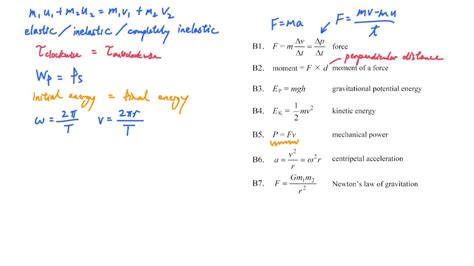 m₁u₁ + m₂u₂ = m₁v₁ + m₂v₂
elastic / inelastic / completely inelastic
τclockwise = τanticlockwise
Wp = ƒs
Initial energy = final energy
ω = 2π/T v = 2πr/T
F=ma F = mv-mu/t
B1. F = m Δv/Δt = Δp/Δt force
perpendicular distance
B2. moment = F × d moment of a force
B3. E_P = mgh gravitational potential energy
B4. E_K = 1/2 mv² kinetic energy
B5. P = Fv mechanical power
B6. a = v²/r = ω²r centripetal acceleration
B7. F = Gm₁m₂/r² Newton's law of gravitation